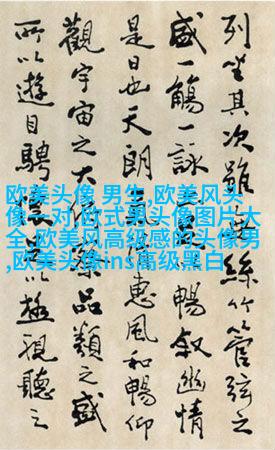 列坐其次雖絲竹管弦之
盛一觴一詠暢敘幽情
是日也天朗惠風和暢仰
觀宇宙之大品類之盛
所以遊目騁以極視聽之
欧美头像 男生,欧美风头
像一对,欧式男头像图片大
全,欧美风高级感的头像男
,欧美头像ins高级黑白